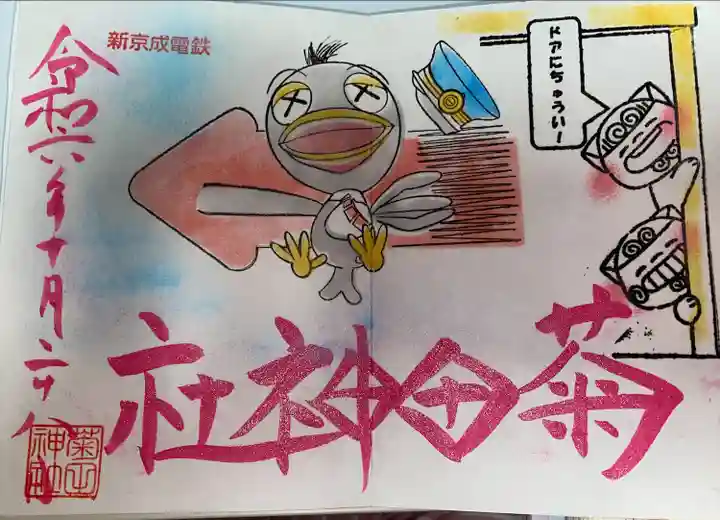 新京成電鉄
ドアにちゅうい!
菊田神社
令和六年十月二十八日
菊田神社